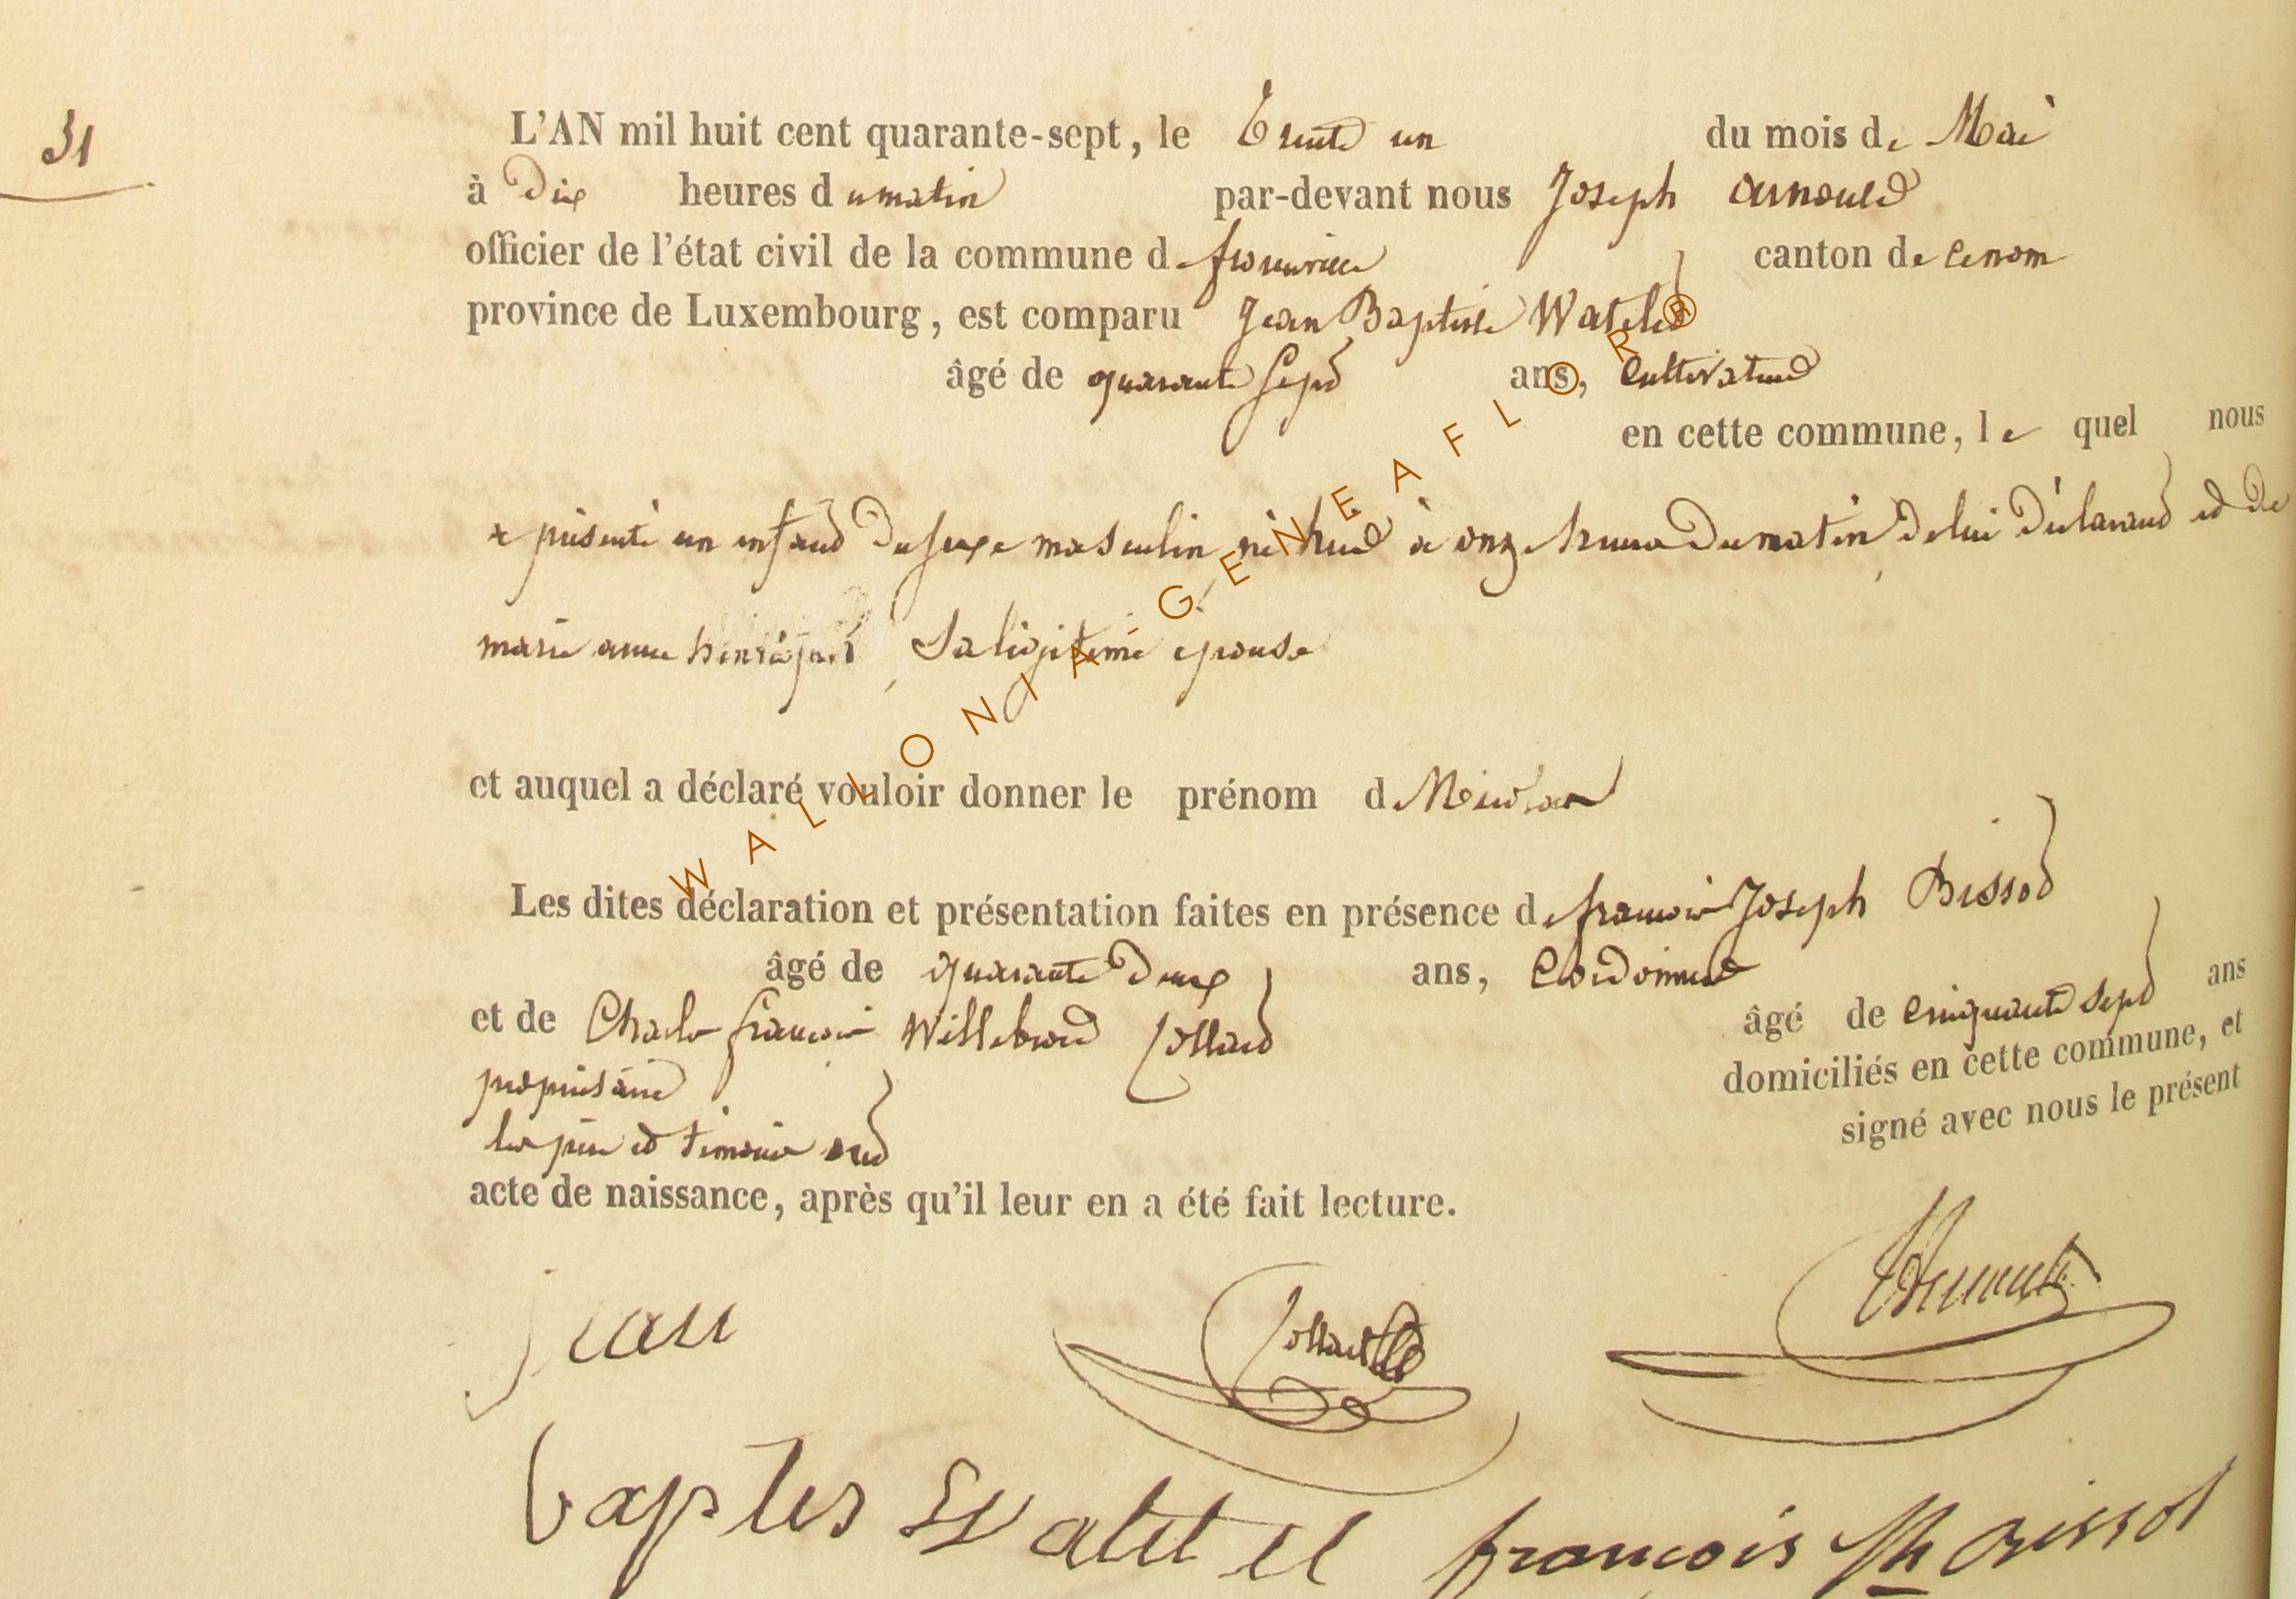 31
L'AN mil huit cent quarante-sept, le trente un du mois de Mai
à Dix heures du matin par-devant nous Joseph arnould
officier de l'état civil de la commune de canton de
province de Luxembourg, est comparu Jean Baptiste Watelet
âgé de quarante sept ans, Cultivateur
en cette commune, le quel nous
a présenté un enfant du sexe masculin né hier à onze heures du matin de lui déclarant et de
marie anne Sa légitime epouse
et auquel a déclaré vouloir donner le prénom d
Les dites déclaration et présentation faites en présence de francois Joseph Bissot
âgé de quarante deux ans, Cordonnier
et de Charles francois Willebrord Collard âgé de cinquante sept ans
propriétaire domiciliés en cette commune, et
les père et témoins ont signé avec nous le présent
acte de naissance, après qu'il leur en a été fait lecture.
jean Collard
baptes Watelet francois Jph Bissot
WALLONIA-GENEAFLORE®